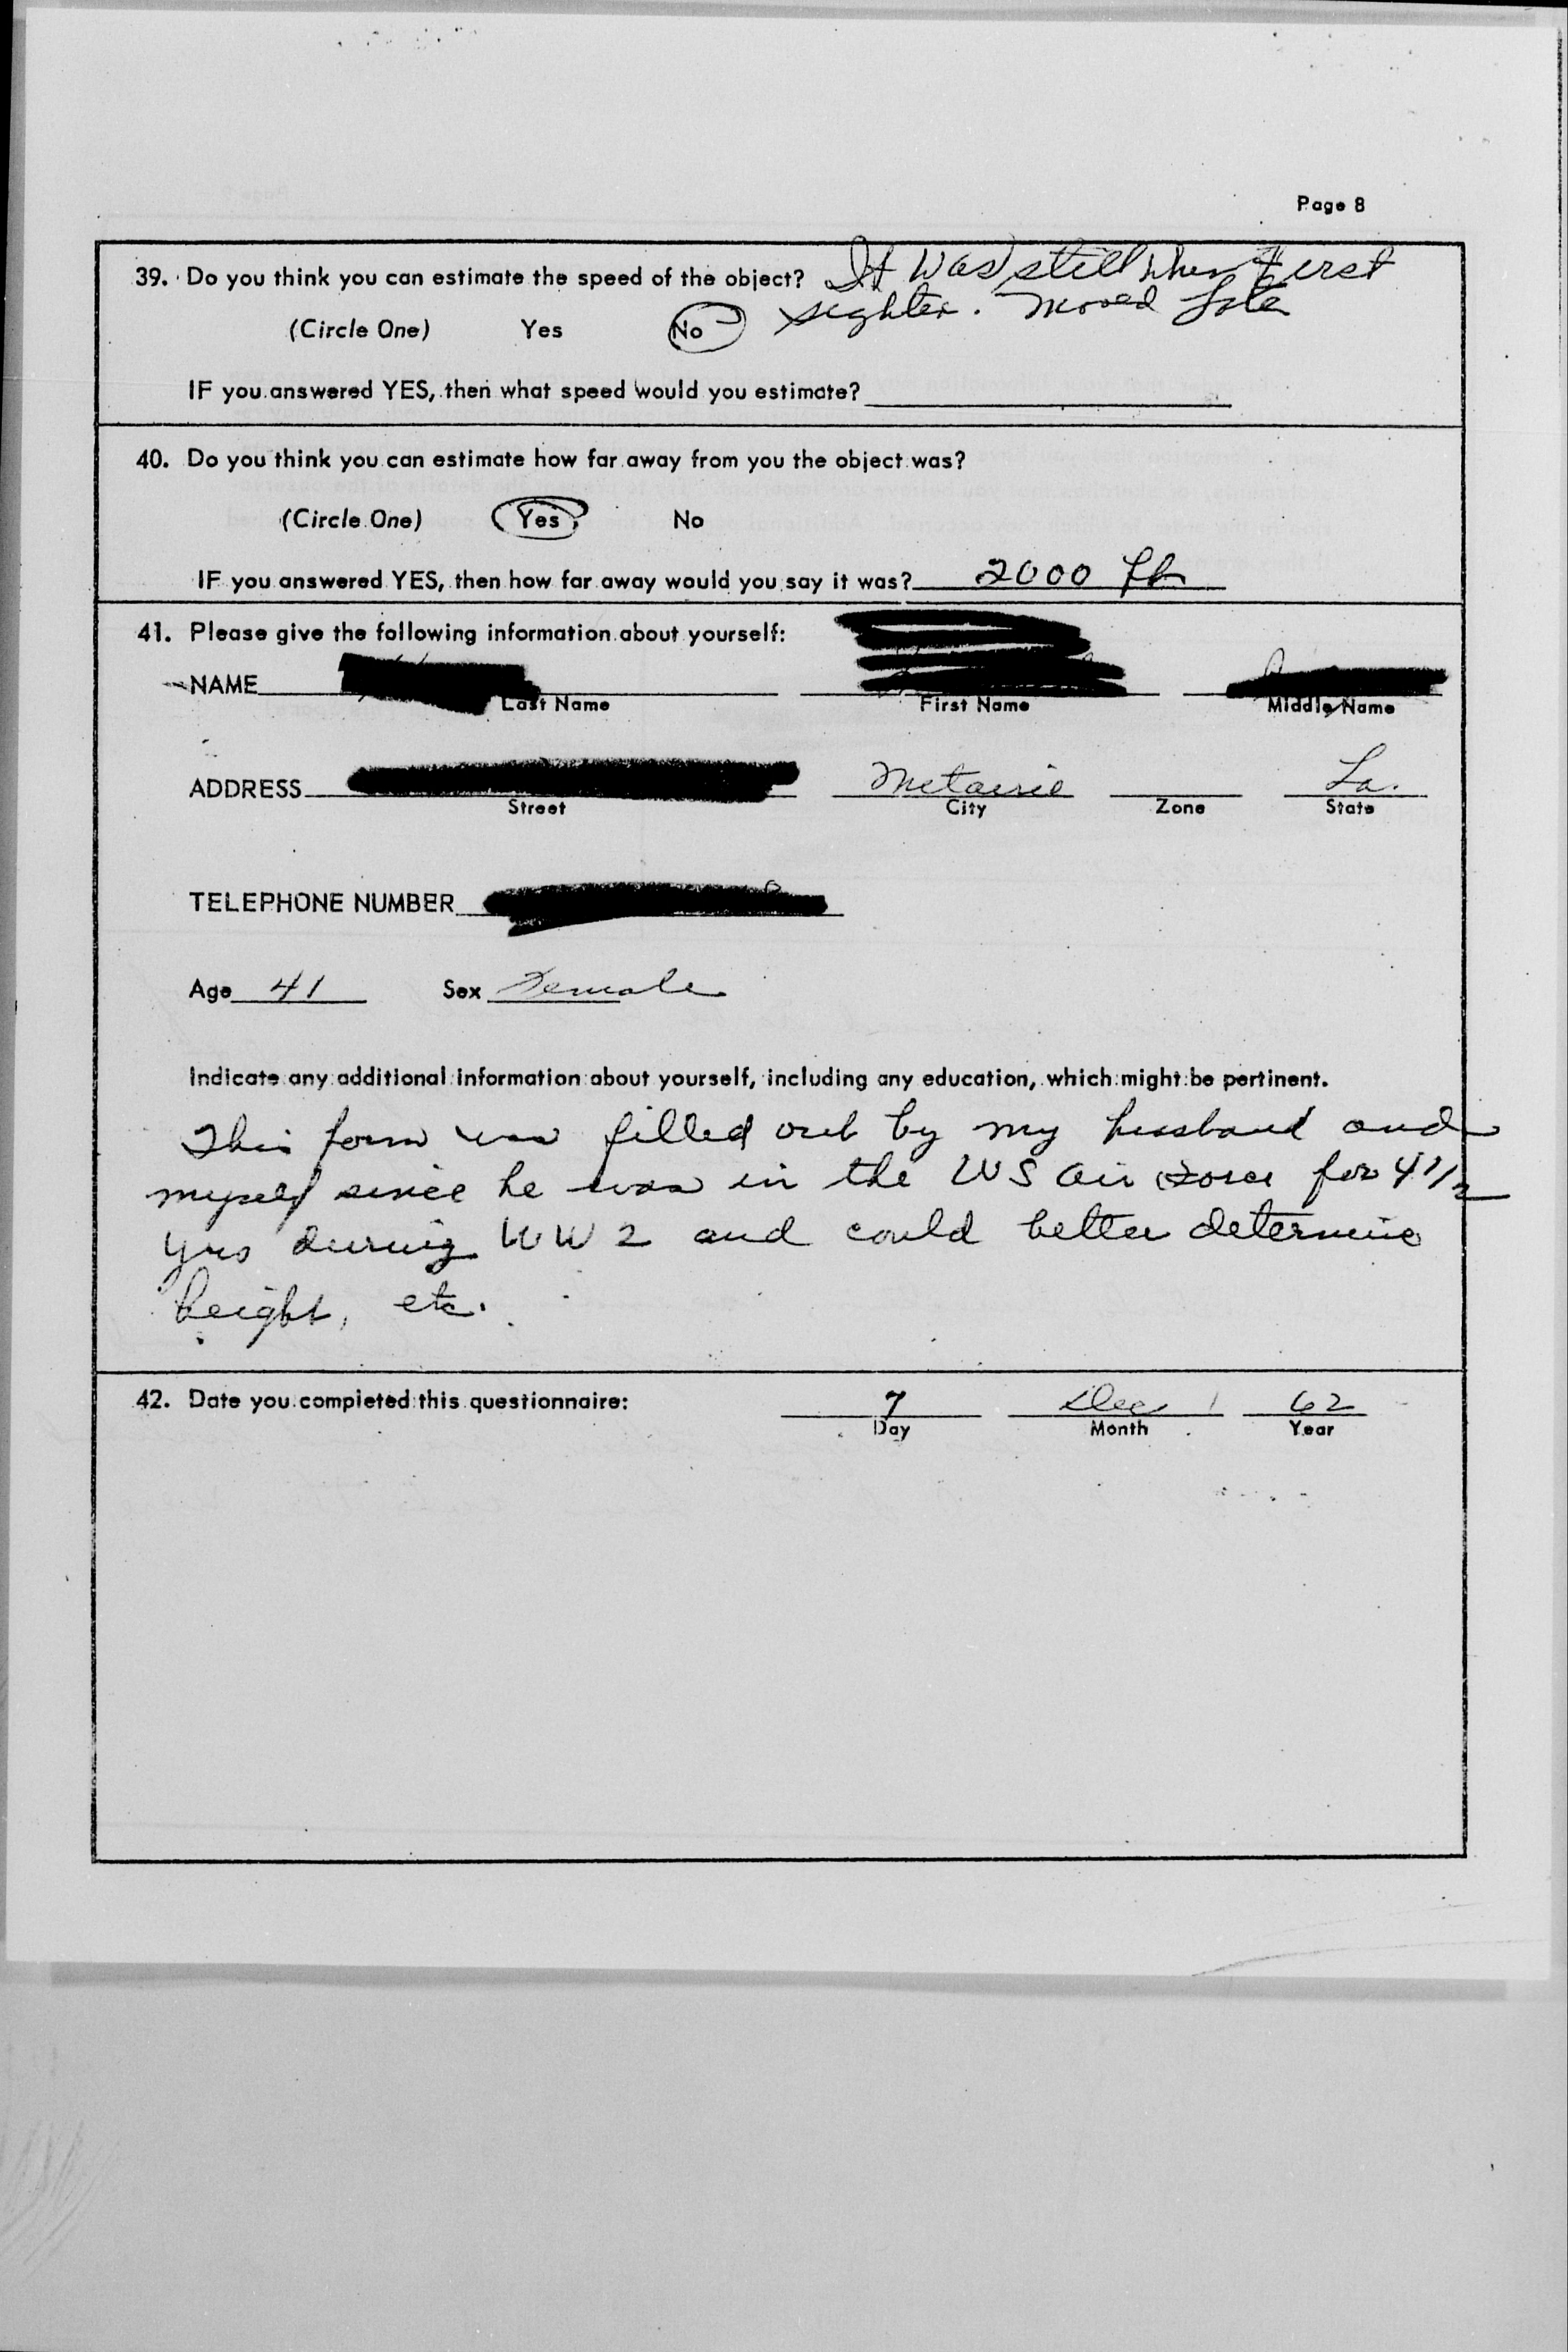 Page 8
39. Do you think you can estimate the speed of the object? It was still when first
sighted. Moved later
(Circle One) Yes No
IF you answered YES, then what speed would you estimate?
40. Do you think you can estimate how far away from you the object was?
(Circle One) Yes No
IF you answered YES, then how far away would you say it was? 2000 ft
41. Please give the following information about yourself:
NAME
Last Name First Name Middle Name
ADDRESS Metairie La.
Street City Zone State
TELEPHONE NUMBER
Age 41 Sex Female
Indicate any additional information about yourself, including any education, which might be pertinent.
This form was filled out by my husband and
myself since he was in the US Air Force for 4 1/2
yrs during WW 2 and could better determine
height, etc.
42. Date you completed this questionnaire: 7 Dec 62
Day Month Year